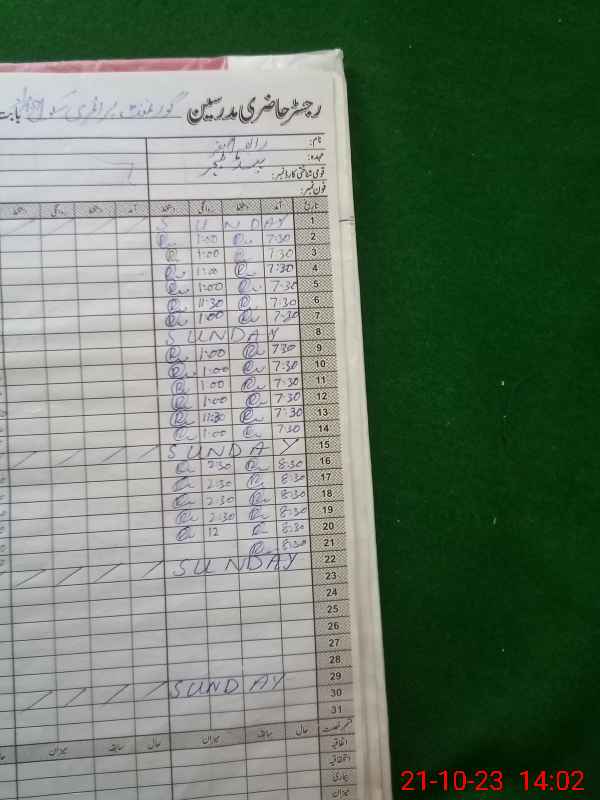 رجسٹر حاضری مدرسین گورنمنٹ پرائمری بابت
نام:
عہدہ: ہیڈ ٹیچر
قومی شناختی کارڈ نمبر:
فون نمبر:
تاریخ آمد دستخط روانگی دستخط آمد دستخط روانگی دستخط
1 SUNDAY
2 7:30 1:00
3 7:30 1:00
4 7:30 1:00
5 7:30 1:00
6 7:30 11:30
7 7:30 1:00
8 SUNDAY
9 730 1:00
10 7:30 1:00
11 7:30 1:00
12 7:30 1:00
13 7:30 11:30
14 7:30 1:00
15 SUNDAY
16 8:30 2:30
17 8:30 2:30
18 8:30 2:30
19 8:30 2:30
20 8:30 12
21 8:30
22 SUNDAY
23
24
25
26
27
28
29 SUNDAY
30
31
قسم رخصت حال سابقہ میزان حال سابقہ میزان
اتفاقیہ
استحقاقیہ
بیماری
میزان
21-10-23 14:02